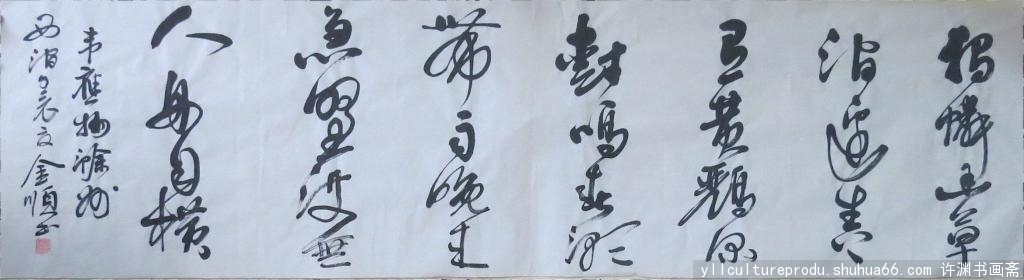 獨憐幽草
澗邊生上
有黄鸝深
樹鳴春潮
帶雨晚来
急野渡無
人舟自橫
韋應物滁州
西澗 金順书
yllcultureprodu.shuhua66.com 许渊书画斋